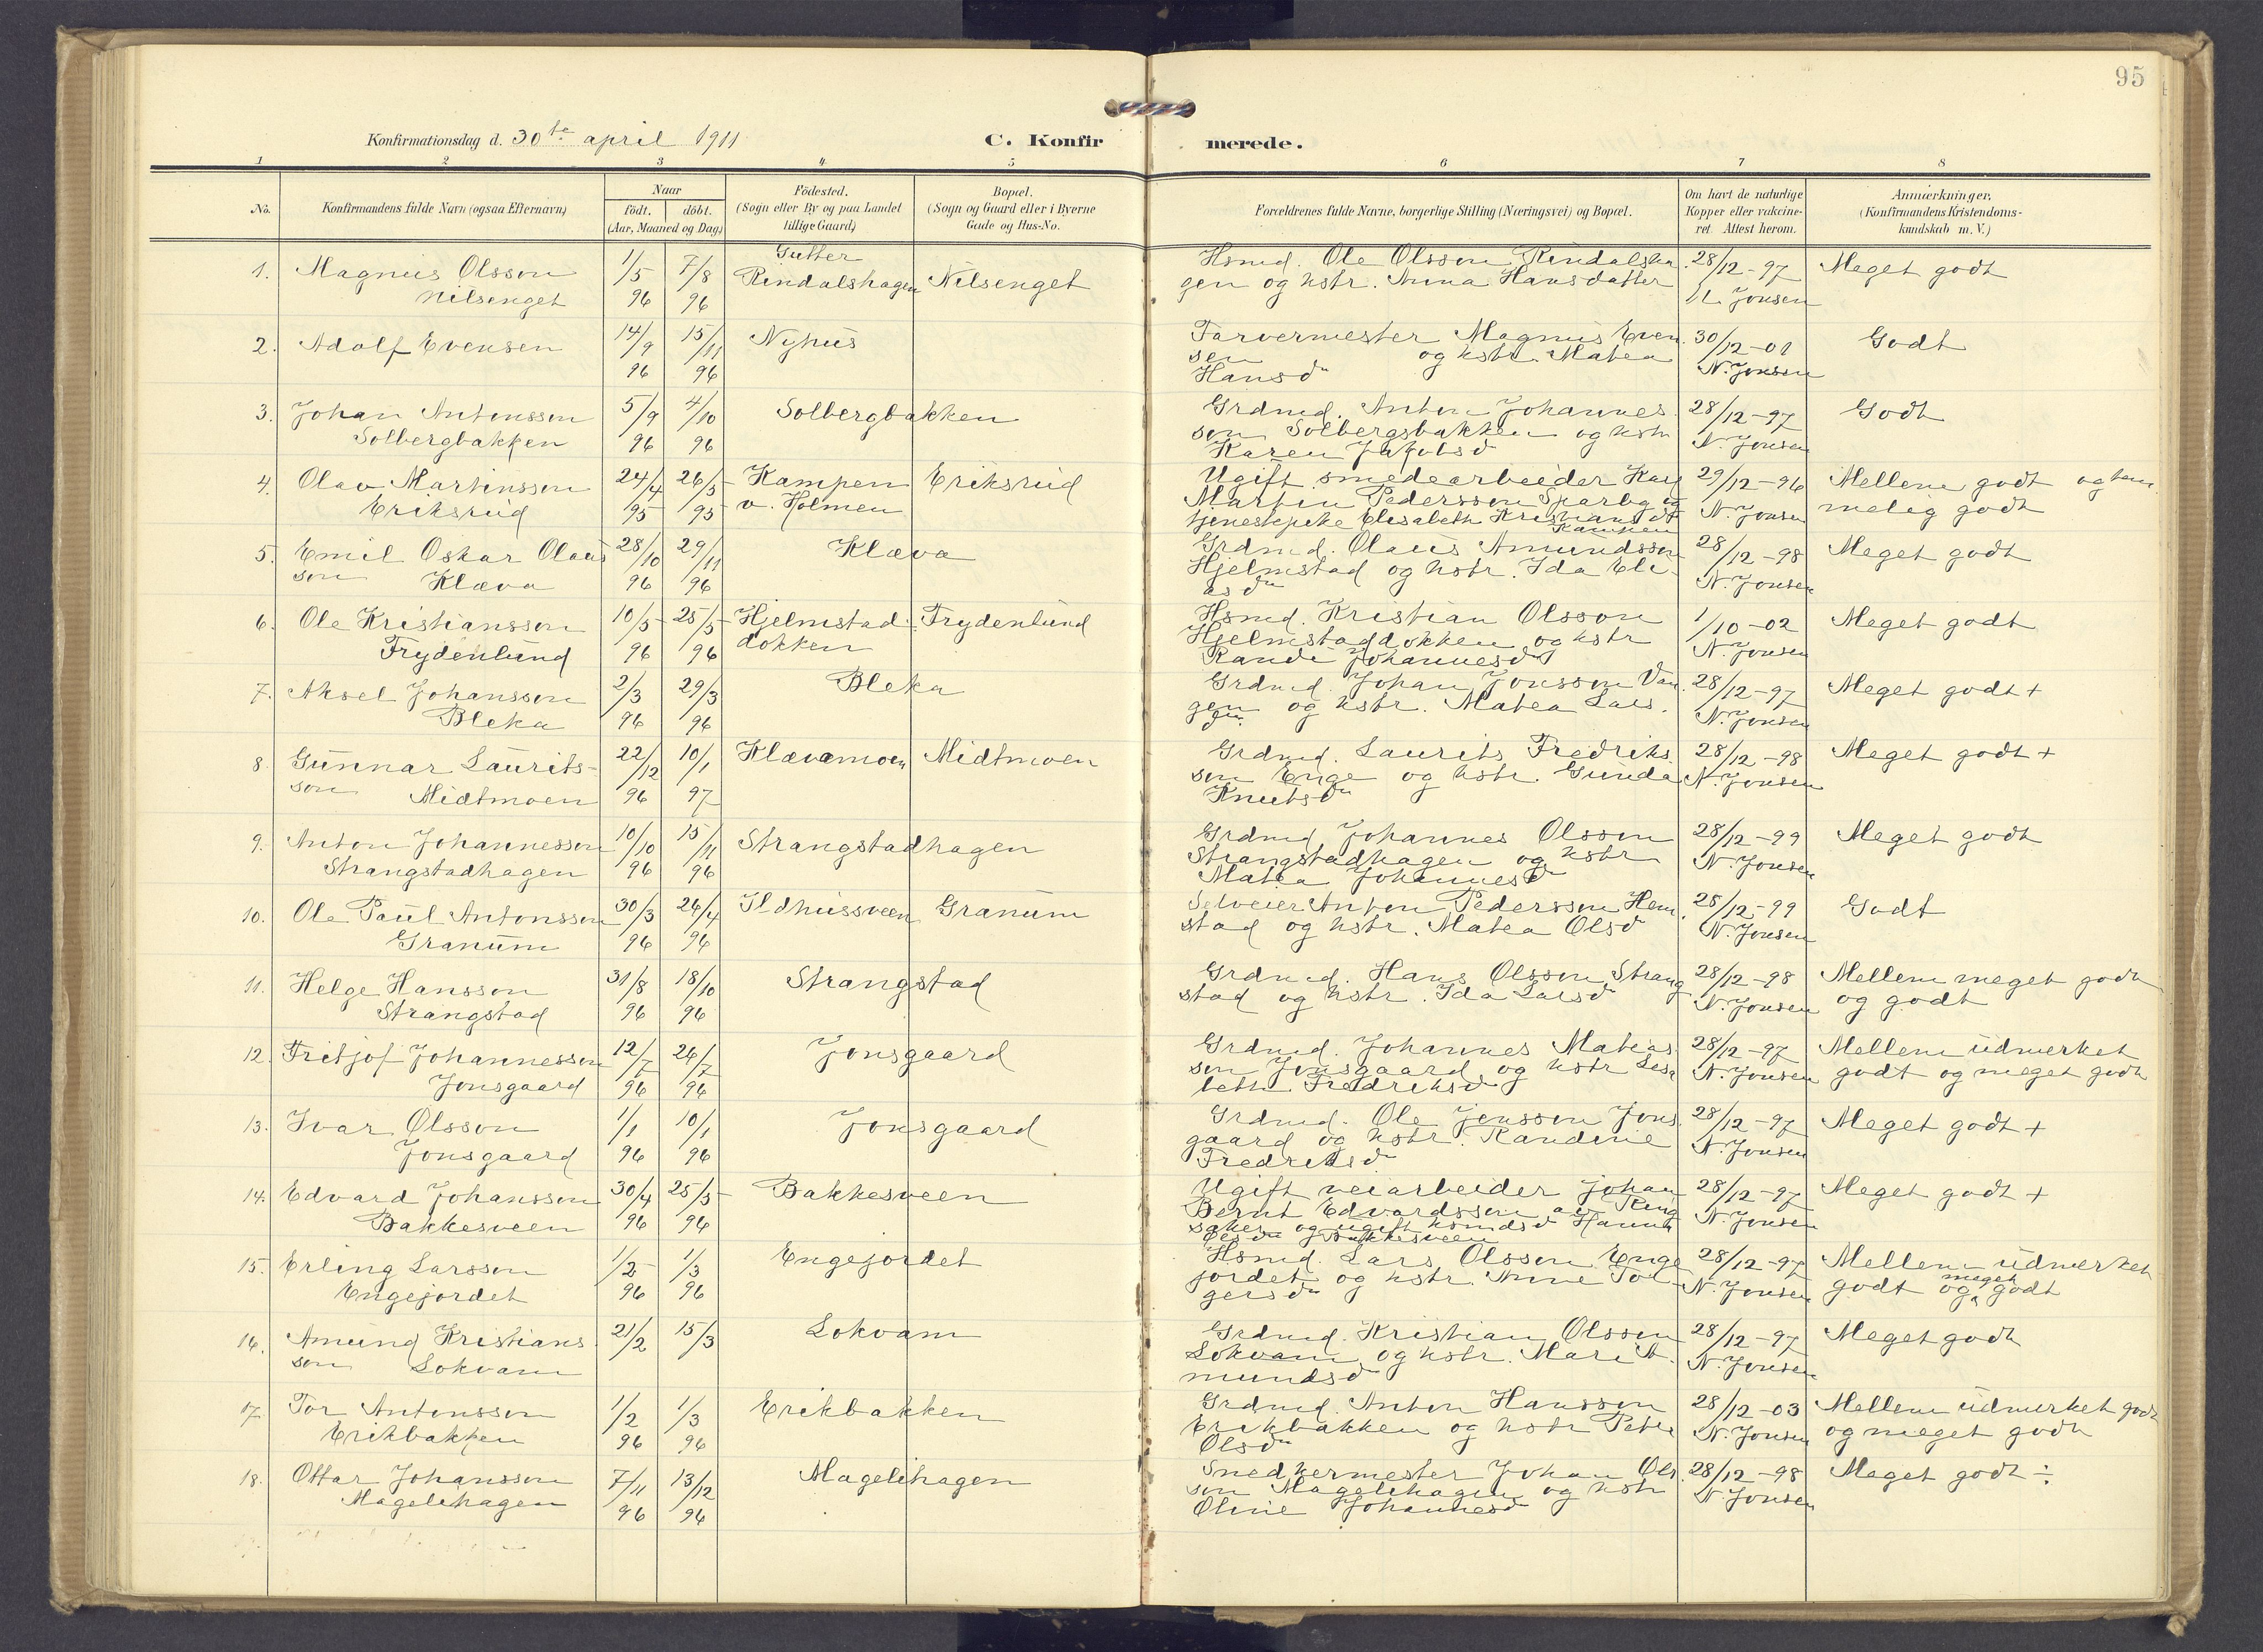 95
Konfirmationsdag d. 30te april 1911
C. Konfir merede.
1 2 3 4 5 6 7 8
No.
Konfirmandens fulde Navn (ogsaa Efternavn)
Naar
födt. döbt.
(Aar, Maaned og Dag)
Födested.
(Sogn eller By og paa Landet
tillige Gaard)
Bopæl.
(Sogn og Gaard eller i Byerne
Gade og Hus-No.
Forældrenes fulde Navne, borgerlige Stilling (Næringsvei) og Bopæl.
Om havt de naturlige
Kopper eller vakcine-
ret. Attest herom.
Anmærkninger.
(Konfirmandens Kristendoms-
kundskab m. V.)
Gutter
1. Magnus Olsson 1/5 7/8 Rindalshagen Nilsenget
Nilsenget 96 96
Hsmd. Ole Olsson Rindalsha
gen og kstr. Anna Hansdatter
28/12-97
N. Jonsen
Meget godt
2. Adolf Evensen 14/9 15/11 Nyhus
96 96
Farvermester Magnus Even
sen og kstr. Matea
Hansdr
30/12-01
N. Jonsen
Godt
3. Johan Antonsson 5/9 4/10 Solbergbakken
Solbergbakken 96 96
Grdmd. Anton Johannes
son Solbergsbakken og kstr
Karen Jakobsd
28/12-97
N. Jonsen
Godt
4. Olav Martinsson 24/4 26/5 Kampen Eriksrud
Eriksrud 95 95 v. Holmen
Ugift smedearbeider Karl
Martin Pedersson Sparby og
tjenestepike Elisabeth Kristiansdt
Kampen
29/12-96
N. Jonsen
Mellem godt og tem
melig godt
5. Emil Oskar Olaus 28/10 29/11 Klæva
son Klæva 96 96
Grdmd. Olaus Amundsson
Hjelmstad og kstr. Ida Eli-
asdr
28/12-98
N. Jonsen
Meget godt
6. Ole Kristiansson 10/5 25/5 Hjelmstad- Frydenlund
Frydenlund 96 96 dokken
Hsmd. Kristian Olsson
Hjelmstaddokken og kstr
Randi Johannesdt
1/10-02
N. Jonsen
Meget godt
7. Aksel Johansson 2/3 29/3 Bleka
Bleka 96 96
Grdmd. Johan Jonsson Van
gen og kstr. Matea Lars.
dr.
28/12-97
N. Jonsen
Meget godt +
8. Gunnar Laurits- 22/12 10/1 Klævamoen Midtmoen
son Midtmoen 96 97
Grdmd. Laurits Fredriks
son Enge og kstr. Gunda
Knutsdr
28/12-98
N. Jonsen
Meget godt +
9. Anton Johannesson 10/10 15/11 Strangstadhagen
Strangstadhagen 96 96
Grdmd Johannes Olsson
Strangstadhagen og kstr
Matea Johannesd
28/12-99
N. Jonsen
Meget godt
10. Ole Paul Antonsson 30/3 26/4 Ildhussveen Granum
Granum 96 96
Selveier Anton Pedersson Hem
stad og kstr. Matea Olsd
28/12-99
N. Jonsen
Godt
11. Helge Hansson 31/8 18/10 Strangstad
Strangstad 96 96
Grdmd. Hans Olsson Strang
stad og kstr. Ida Larsd
28/12-98
N. Jonsen
Mellem meget godt
og godt
12. Fritjof Johannesson 12/7 26/7 Jonsgaard
Jonsgaard 96 96
Grdmd. Johannes Mateas
son Jonsgaard og kstr Lisa
beth Fredriksd
28/12-97
N. Jonsen
Mellem udmerket
godt og meget godt
13. Ivar Olsson 1/1 10/1 Jonsgaard
Jonsgaard 96 96
Grdmd. Ole Jonsson Jons
gaard og kstr. Randine
Fredriksd
28/12-97
N. Jonsen
Meget godt +
14. Edvard Johansson 30/4 25/5 Bakkesveen
Bakkesveen 96 96
Ugift veiarbeider Johan
Bernt Edvardsson av Ring
saker og ugift hsmdsd Hanna
Olsdr Bakkesveen
28/12-97
N. Jonsen
Meget godt +
15. Erling Larsson 1/2 1/3 Engejordet
Engejordet 96 96
Hsmd. Lars Olsson Enge
jordet og kstr Anne Tol-
gersdr
28/12-97
N. Jonsen
Mellem udmerket
godt og meget godt
16. Amund Kristians 21/2 15/3 Lokvam
son Lokvam
Grdmd. Kristian Olsson
Lokvam og kstr. Mari A.
mundsd
28/12-97
N. Jonsen
Meget godt
17. Tor Antonsson 1/2 1/3 Erikbakken
Erikbakken 96 96
Grdmd. Anton Hansson
Erikbakken og kstr
Olsdr
28/12-03
N. Jonsen
Mellem udmerket godt
og meget godt
18. Ottar Johansson 7/11 13/12 Magelihagen
Magelihagen 96 96
Snedkermester Johan Ols
son Magelihagen og kstr
Oline Johannesd
28/12-98
N. Jonsen
Meget godt ÷